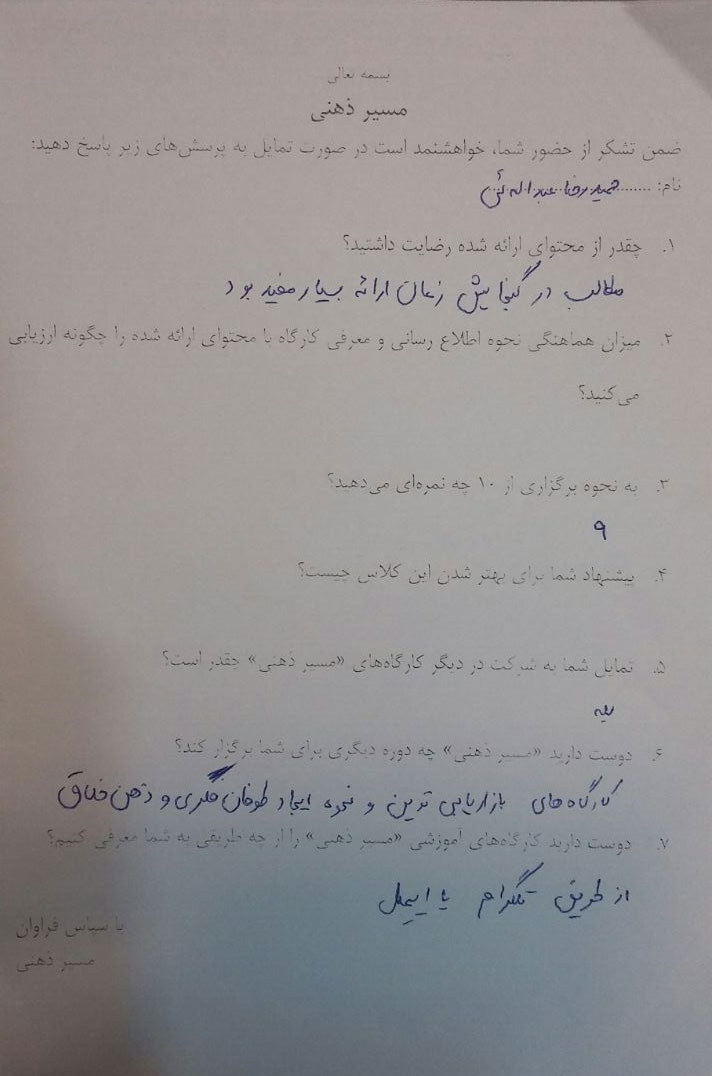 بسمه تعالی
مسیر ذهنی
ضمن تشکر از حضور شما، خواهشنمد است در صورت تمایل به پرسش‌های زیر پاسخ دهید:
نام: ........ حمیدرضا عبداله ئی
۱. چقدر از محتوای ارائه شده رضایت داشتید؟
مطالب در گنجایش زمان ارائه بسیار مفید بود
۲. میزان هماهنگی نحوه اطلاع رسانی و معرفی کارگاه با محتوای ارائه شده را چگونه ارزیابی
می‌کنید؟
۳. به نحوه برگزاری از ۱۰ چه نمره‌ای می‌دهید؟
۹
۴. پیشنهاد شما برای بهتر شدن این کلاس چیست؟
۵. تمایل شما به شرکت در دیگر کارگاه‌های «مسیر ذهنی» چقدر است؟
بله
۶. دوست دارید «مسیر ذهنی» چه دوره دیگری برای شما برگزار کند؟
کارگاه های بازاریابی نوین و نحوه ایجاد طوفان فکری و ذهن خلاق
۷. دوست دارید کارگاه‌های آموزشی «مسیر ذهنی» را از چه طریقی به شما معرفی کنیم؟
از طریق تلگرام یا ایمیل
با سپاس فراوان
مسیر ذهنی